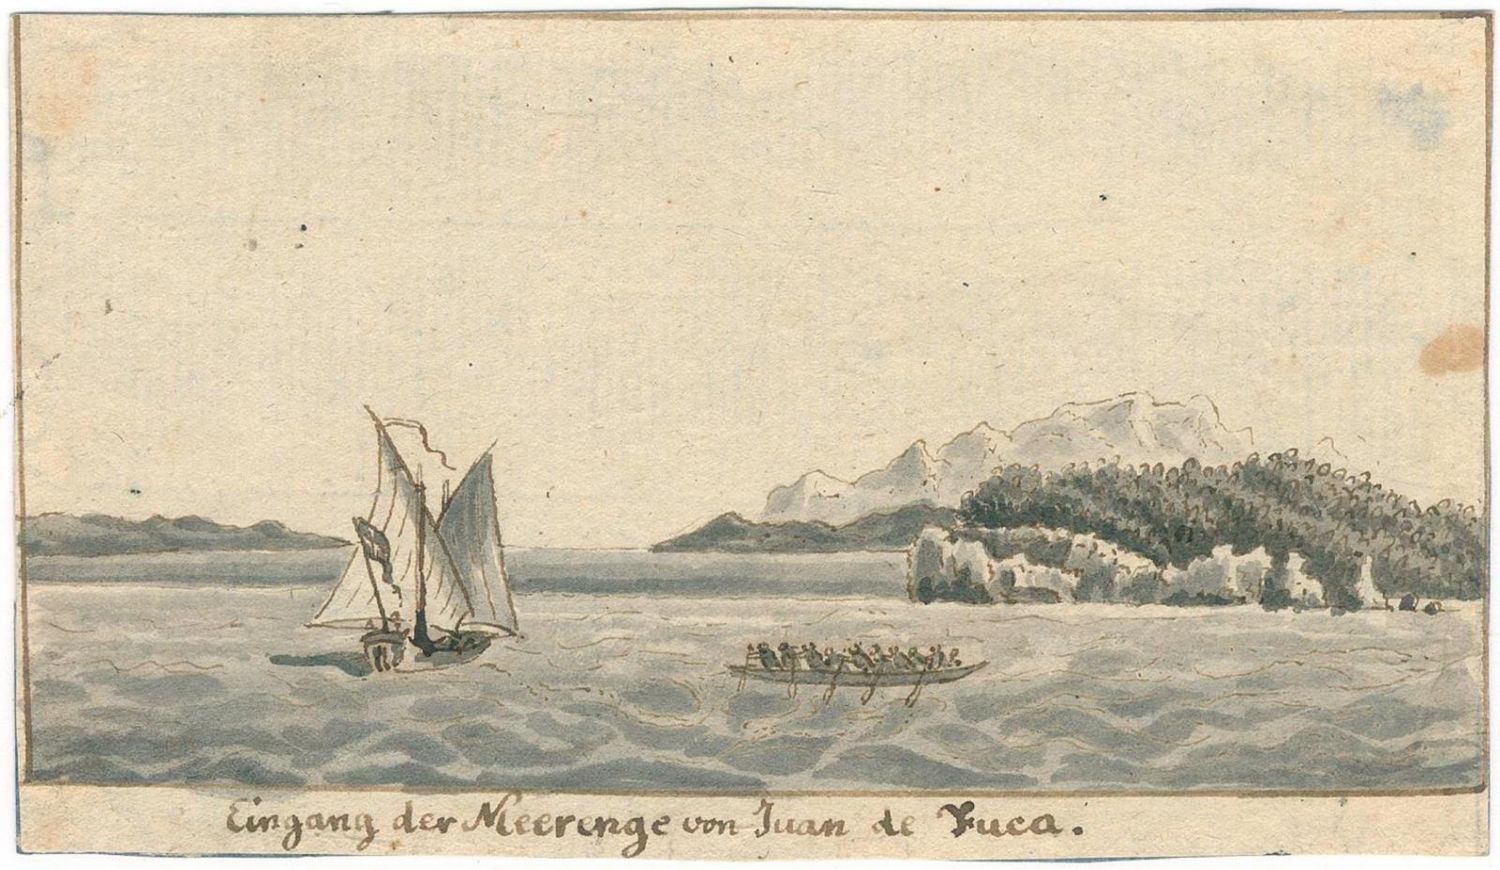 Eingang der Meerenge von Juan de Fuca.